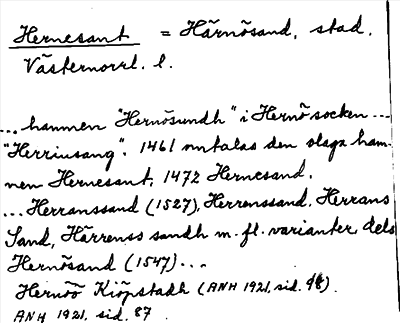 Hernesant = Härnösand, stad.
Västernorrl. l.
... hamnen "Hernösundh" i Hernö socken ...
"Herrinsang". 1461 omtalas den slags ham-
nen Hernesant, 1472 Hernesand.
... Herranssand (1527), Herrenssand, Herrans
Sand, Härrenss sandh m. fl. varianter, dels
Hernösand (1547) ...
Hernöö Kiöpstadh (ANH 1921, sid. 98).
ANH 1921, sid. 87